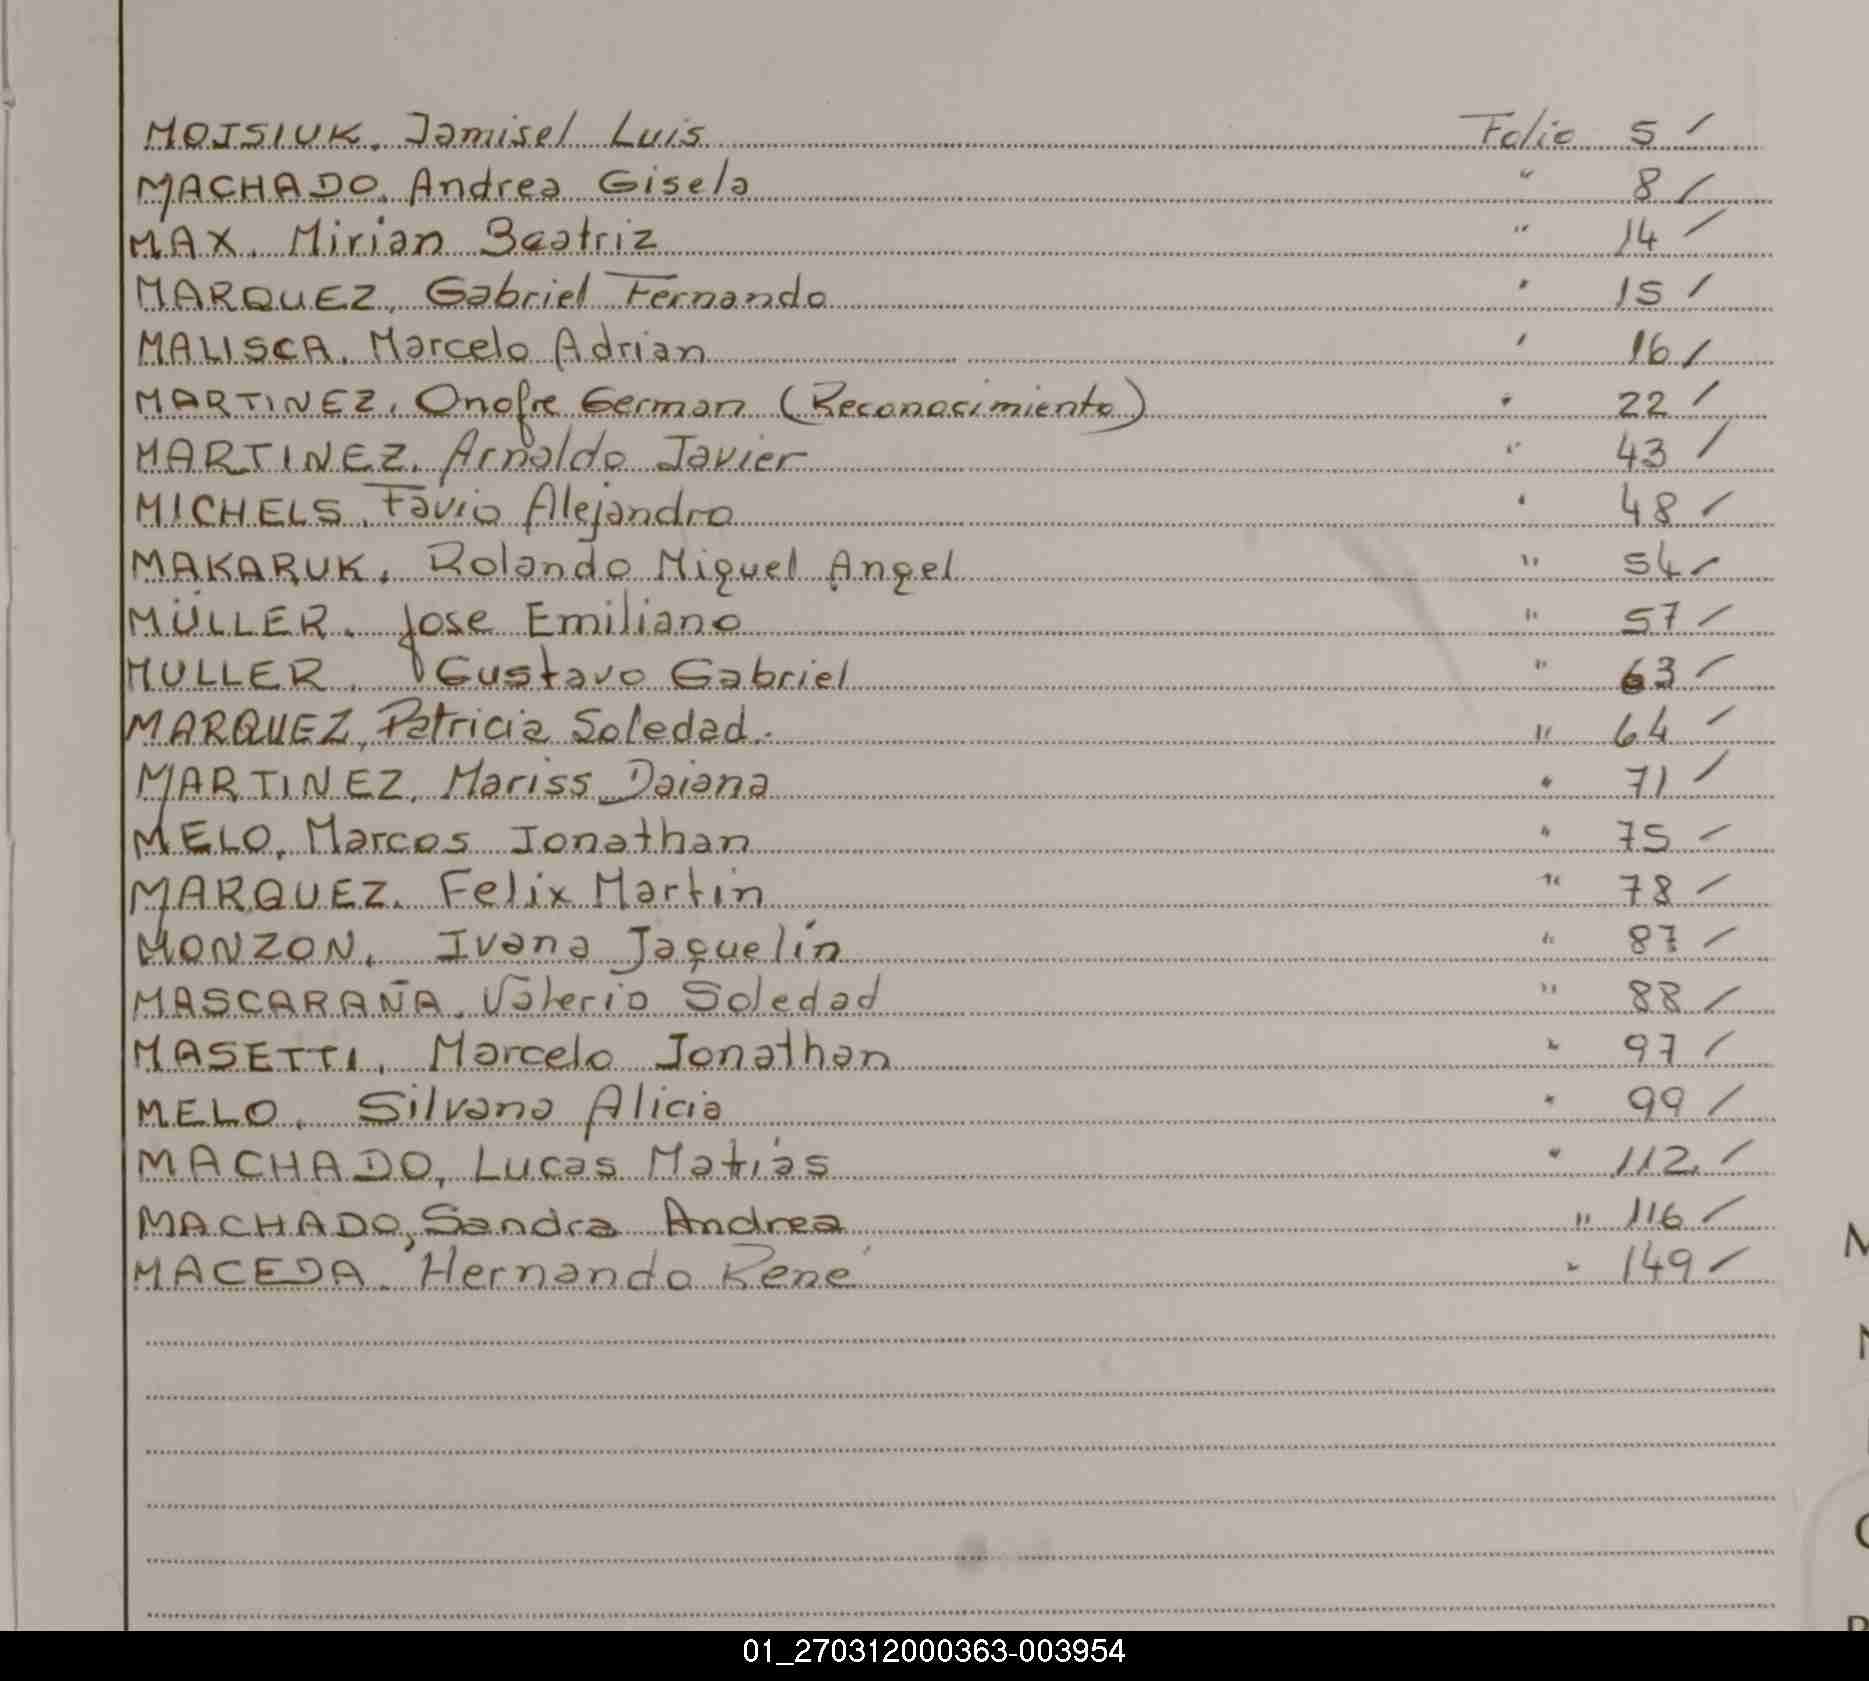 MOJSIUK, Jamisel Luis Folio 5 /
MACHADO, Andrea Gisela " 8 /
MAX, Mirian Beatriz " 14 /
MARQUEZ, Gabriel Fernando " 15 /
MALISCA, Marcelo Adrian " 16 /
MARTINEZ, Onofre German (Reconocimiento) " 22 /
MARTINEZ, Arnaldo Javier " 43 /
MICHELS, Favio Alejandro " 48 /
MAKARUK, Rolando Miguel Angel " 54 /
MÜLLER, Jose Emiliano " 57 /
MULLER, Gustavo Gabriel " 63 /
MARQUEZ, Patricia Soledad. " 64 /
MARTINEZ, Mariss Daiana " 71 /
MELO, Marcos Jonathan " 75 /
MARQUEZ, Felix Martin " 78 /
MONZON, Ivana Jaquelín " 87 /
MASCARAÑA, Valeria Soledad " 88 /
MASETTI, Marcelo Jonathan " 97 /
MELO, Silvana Alicia " 99 /
MACHADO, Lucas Matías " 112. /
MACHADO, Sandra Andrea " 116 /
MACEDA, Hernando René " 149 /
M
N
01_270312000363-003954